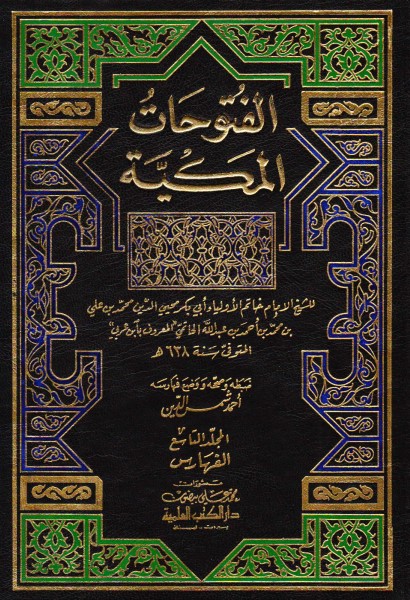 الفُتُوحَاتُ
المَكِّيَّة
للشيخ الإمام خاتم الأولياء أبي بكر محيي الدين محمد بن علي
بن محمد بن أحمد بن عبد الله الحاتمي المعروف بابن عربي
المتوفى سنة ٦٣٨ هـ
ضبطه وصححه ووضع فهارسه
أحمد شمس الدين
المجلد التاسع
الفهارس
منشورات
محمد علي بيضون
دار الكتب العلمية
بيروت - لبنان